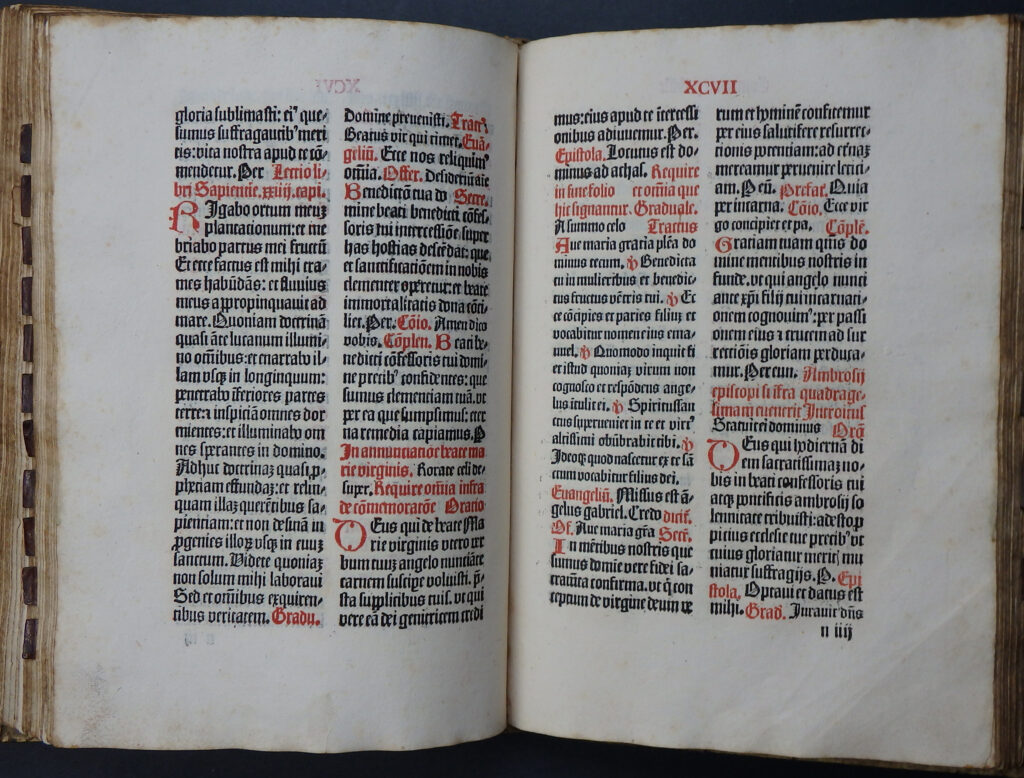 gloria sublimasti: ei⁹ que-
sumus suffragantib⁹ meri
tis: vita nostra apud te cō-
mendetur. Per Lectio li-
bri Sapientie. xxiiij. capi.
Rigabo ortum meuz
plantationum: et ine
briabo partus mei fructū
Et ecce factus est mihi tra-
mes habūdās: et fluvius
meus appropinquavit ad
mare. Quoniam doctrinā
quasi āte lucanum illumi-
no om̄ibus: et enarrabo il-
lam vsq̄ in longinquum:
penetrabo īferiores partes
terre: ⁊ inspiciā omnes dor
mientes: et illuminabo om
nes sperantes in domino.
Adhuc doctrinaz quasi ꝓ-
phetiam effundaz: et relin-
quam illaz querētibus sa-
pientiam: et non desinā in
ꝓgenies illoꝝ vsq̄ in evuz
sanctum. Videte quoniaz
non solum mihi laboravi
Sed et om̄ibus exquiren-
tibus veritatem. Gradu.
Domine prevenisti. Tract⁹
Beatus vir qui timet. Euā-
geliū. Ecce nos reliquim⁹
om̄ia. Offer. Desideriū aīe
Benedictō tua dō Secre.
mine beati benedicti cōfes-
soris tui intercessiōe: super
has hostias descēdat: que
et sanctificatiōem in nobis
clementer operetur: et beate
immortalitatis dona cōci-
liet. Per. Cōio. Amen dico
vobis. Cōplen. Beati be-
nedicti cōfessoris tui domi-
ne precib⁹ confidentes: que
sumus clementiam tuā. vt
per ea que sumpsimus: eter
na remedia capiamus. P
In annunciatiōe beate ma
rie virginis. Rorate celi de-
super. Require om̄ia infra
de cōmemoratiōe Oratio
Deus qui de beate Ma
rie virginis vtero ver
bum tuuz angelo nunciāte
carnem suscipe voluisti. p̄-
sta supplicibus tuis. vt qui
vere eā dei genitricem credi
XCVII
mus: eius apud te ītercessi
onibus adiuvemur. Per.
Epistola. Locutus est do-
minus ad achaz. Require
in fine folio et om̄ia que
hic signantur. Graduale.
A summo celo Tractus
Aue maria gratia plēa do
minus tecum. ℣ Benedicta
tu in mulieribus et benedic-
tus fructus vētris tui. ℣ Ec
ce cōcipies et paries filiuz et
vocabitur nomen eius ema-
nuel. ℣ Quomodo inquit fi
et istud quoniaz virum non
cognosco et respōdens ange-
lus īculit ei. ℣ Spiritussan
ctus superveniet in te et virt⁹
altissimi obūbrabit tibi. ℣
Ideoq̄ quod nascetur ex te sā
ctum vocabitur filius dei.
Euangeliū. Missus est ā-
gelus gabriel. Credo dicit̄.
Of. Aue maria grā Secr̄.
In mētibus nostris que
sumus domie vere fidei sa-
cramēta confirma. vt q̄ con
ceptum de virgine deum ve
rum et hominē confitemur
per eius salutifere resurrec-
tionis potentiam: ad eternaz
mereamur pervenire letici-
am. Per eū. Prefac̄. Quia
per incarna. Cōio. Ecce vir
go concipiet et pa. Cōple.
Gratiam tuam qūis do
mine mentibus nostris in
funde. vt qui angelo nunci
ante xp̄i filij tui incarnati-
onem cognovim⁹: per passi
onem eius ⁊ crucem ad sur
rectiōis gloriam perduca-
mur. Per eun. Ambrosij
episcopi si īfra quadrage-
simam evenerit Introitus
Statuit ei dominus Orō
Deus qui hodiernā di
em sacratissimaz no-
bis in beati confessoris tui
atq̄ pontificis ambrosij so
lennitate tribuisti: adesto ꝓ
picius ecclesie tue precib⁹ vt
cuius gloriatur meritj mu
niatur suffragijs. P. Epi
stola. Optaui et datus est
mihi. Grad. Iuravit dn̄s
n iiij